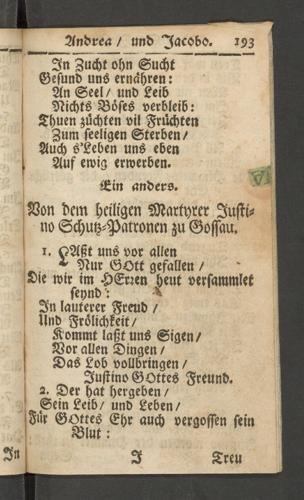 Andrea / und Jacobo. 193
In Zucht ohn Sucht
Gesund uns ernähren:
An Seel / und Leib
Nichts Böses verbleib:
Thuen züchten vil Früchten
Zum seeligen Sterben /
Auch s'Leben uns eben
Auf ewig erwerben.
Ein anders.
Von dem heiligen Martyrer Justi-
no Schutz-Patronen zu Gossau.
1. LAßt uns vor allen
Nur GOtt gefallen /
Die wir im HErren heut versammlet
seynd:
In lauterer Freud /
Und Frölichkeit /
Kommt laßt uns Sigen /
Vor allen Dingen /
Das Lob vollbringen /
Justino GOttes Freund.
2. Der hat hergeben /
Sein Leib / und Leben /
Für GOttes Ehr auch vergossen sein
Blut:
J Treu
In